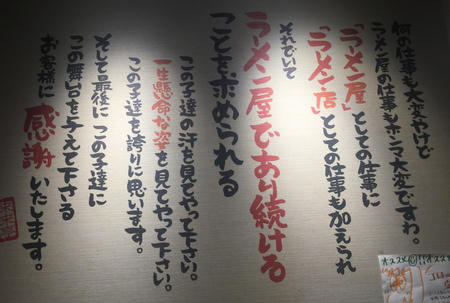 何の仕事も大変やけど
ラーメン屋の仕事もホンマ大変ですわ。
「ラーメン屋」としての仕事に
「ラーメン店」としての仕事も加えられ
それでいて
ラーメン屋であり続ける
ことを求められる
この子達の汗を見てやって下さい。
一生懸命な姿を見てやって下さい。
この子達を誇りに思います。
そして最後にこの子達に
この舞台を与えて下さる
お客様に感謝いたします。
オススメ